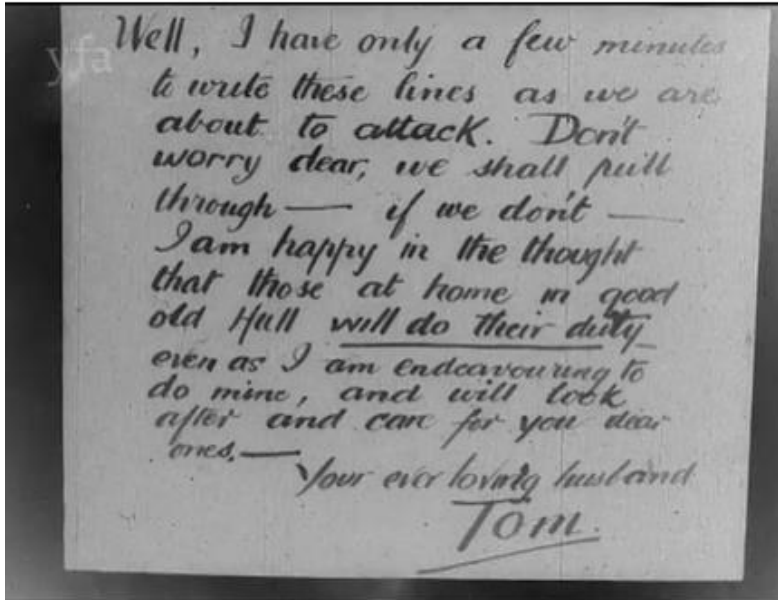 yfa
Well, I have only a few minutes
to write these lines as we are
about to attack. Don't
worry dear, we shall pull
through — if we don't —
I am happy in the thought
that those at home in good
old Hull will do their duty
even as I am endeavouring to
do mine, and will look
after and care for you dear
ones. —
Your ever loving husband
Tom.